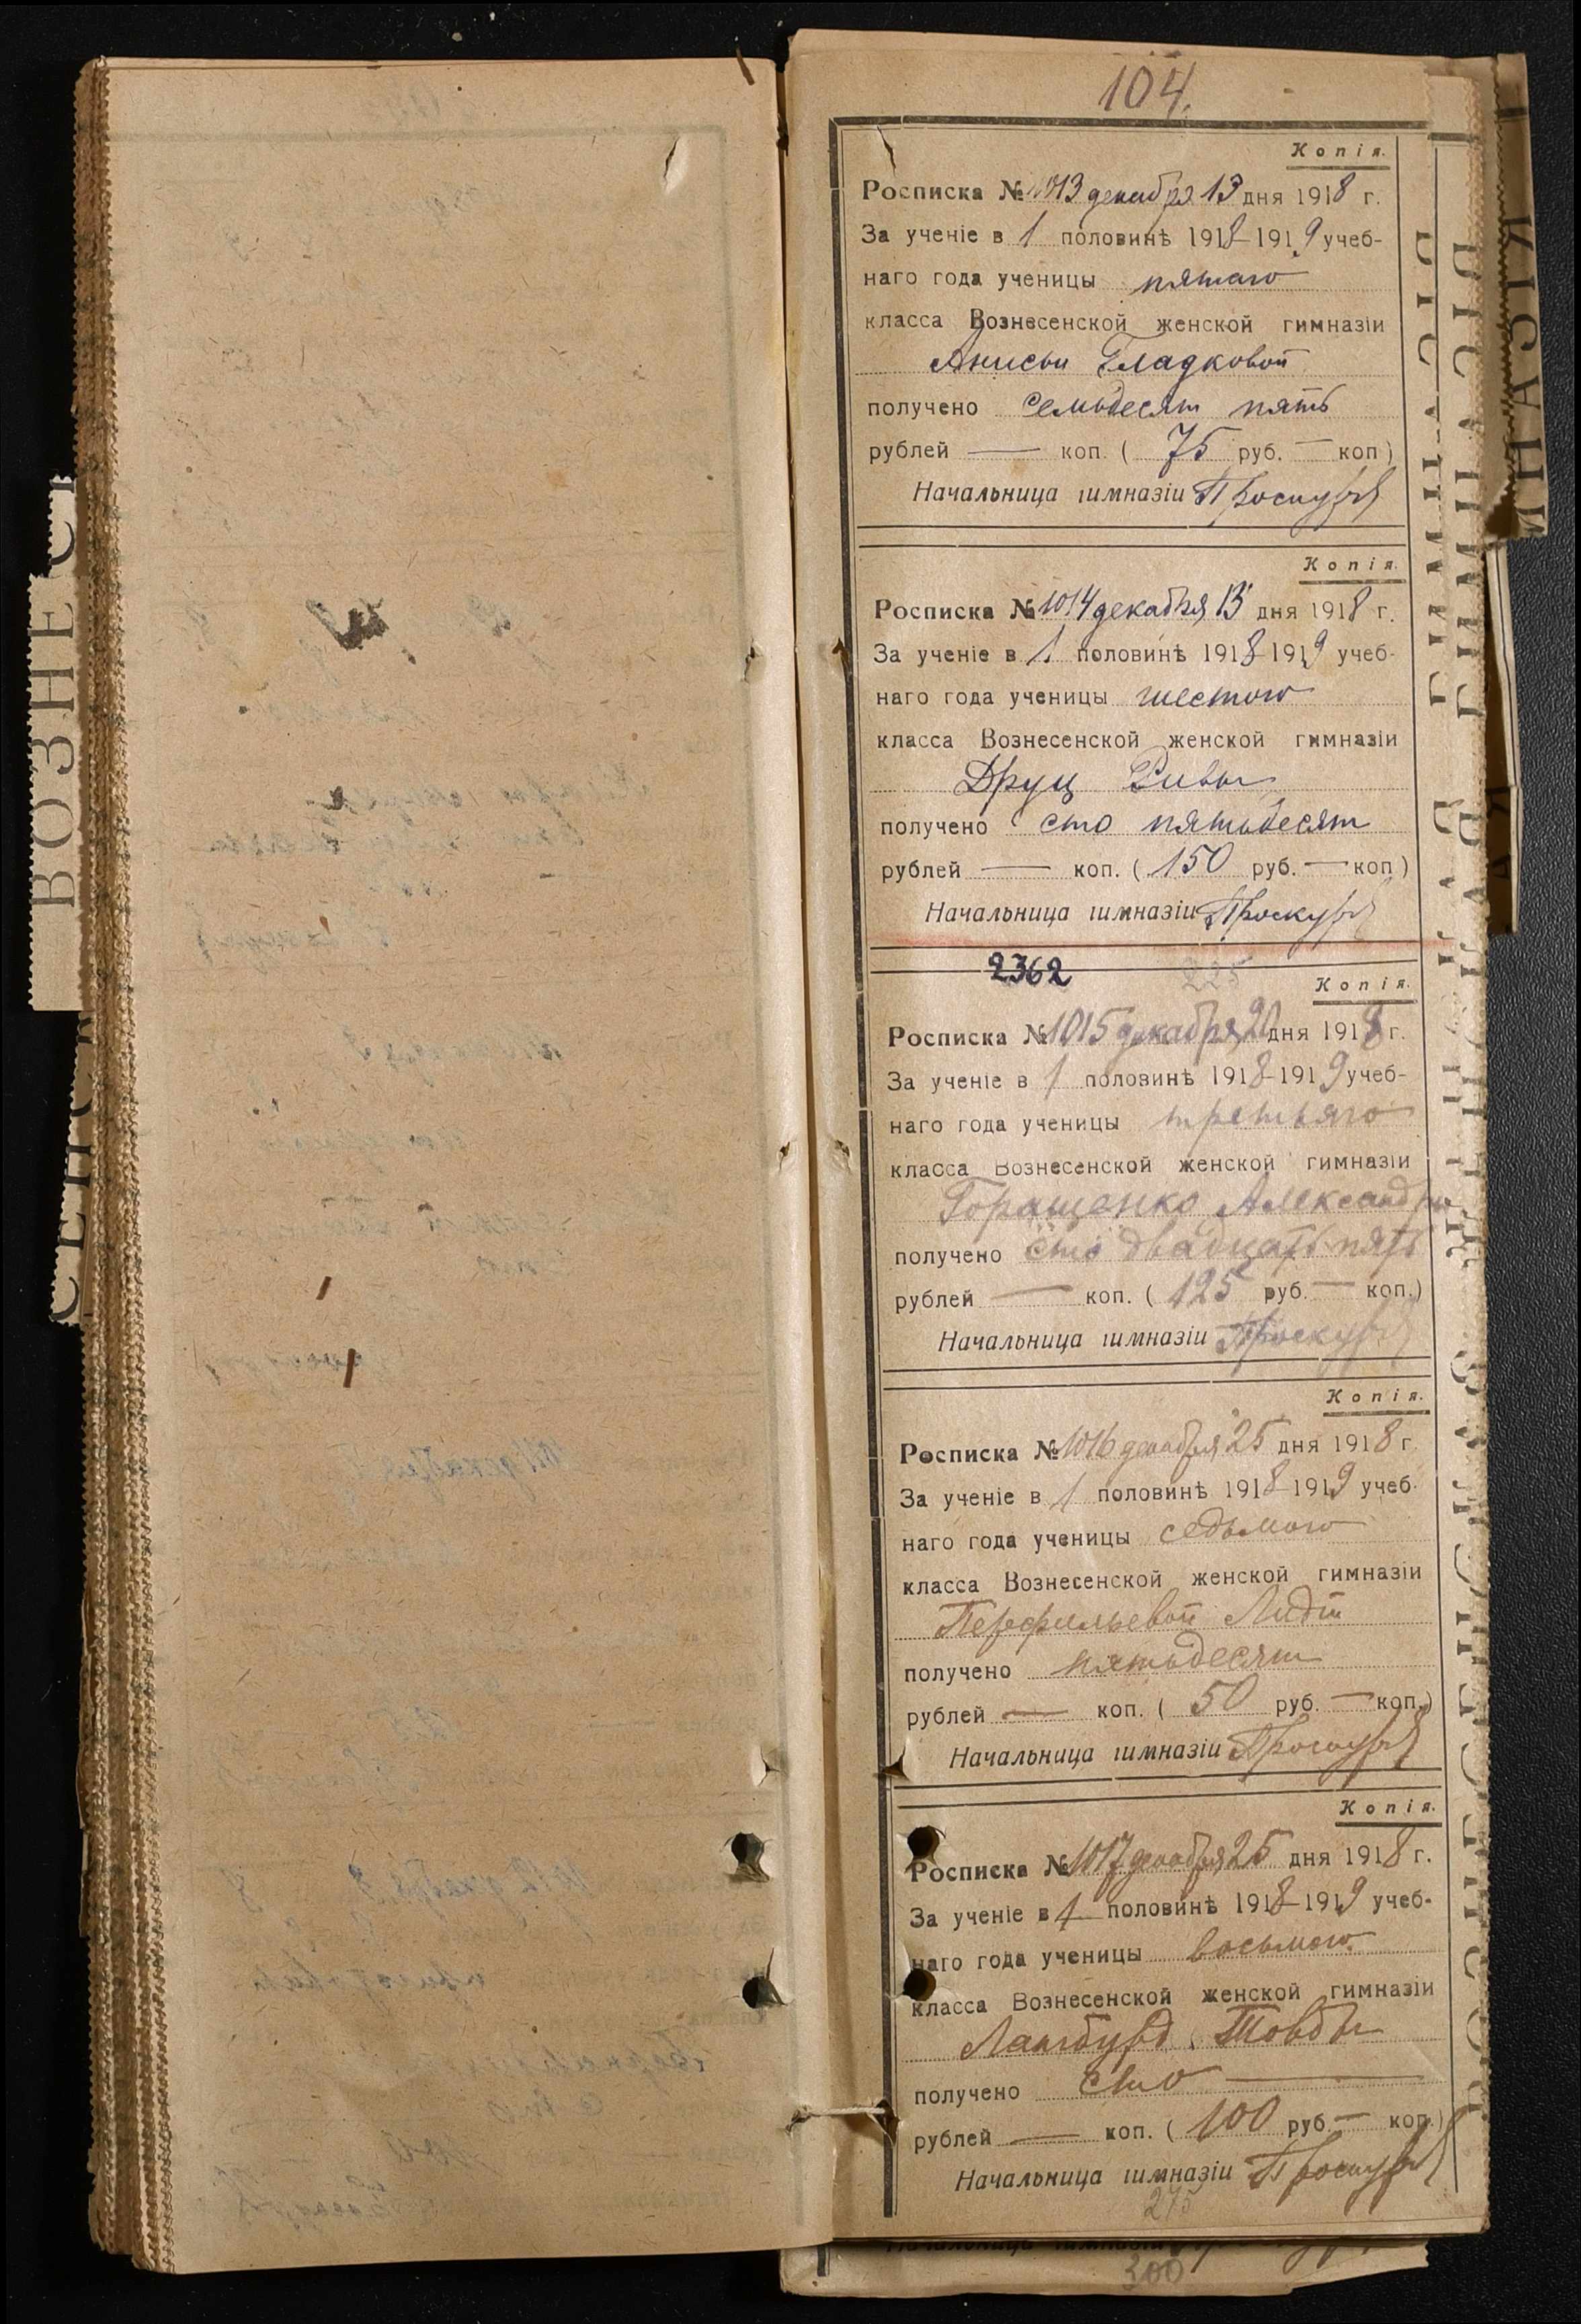 104.
Копія.
Росписка № 1013 декабря 13 дня 1918 г.
За ученіе в 1 половинѣ 1918-1919 учеб-
наго года ученицы пятаго
класса Вознесенской женской гимназіи
Анисьи Гладковой
получено семьдесят пять
рублей — коп. ( 75 руб. — коп )
Начальница гимназіи
Копія.
Росписка № 1014 декабря 13 дня 1918 г.
За ученіе в 1 половинѣ 1918-1919 учеб-
наго года ученицы шестого
класса Вознесенской женской гимназіи
Друц Ривы
получено сто пятьдесят
рублей — коп. ( 150 руб. — коп )
Начальница гимназіи
2362 225
Копія.
Росписка № 1015 декабря 20 дня 1918 г.
За ученіе в 1 половинѣ 1918-1919 учеб-
наго года ученицы третьяго
класса Вознесенской женской гимназіи
Горащенко Александры
получено сто двадцать пять
рублей — коп. ( 125 руб. — коп.)
Начальница гимназіи
Копія.
Росписка № 1016 декабря 25 дня 1918 г.
За ученіе в 1 половинѣ 1918-1919 учеб-
наго года ученицы седьмого
класса Вознесенской женской гимназіи
Перфильевой Лидіи
получено пятьдесят
рублей — коп. ( 50 руб. — коп.)
Начальница гимназіи
Копія.
Росписка № 1017 декабря 25 дня 1918 г.
За ученіе в 1 половинѣ 1918-1919 учеб-
наго года ученицы восьмого
класса Вознесенской женской гимназіи
Лангбурд Товбы
получено сто —
рублей — коп. ( 100 руб. — коп.)
Начальница гимназіи
275
300
ВОЗНЕС